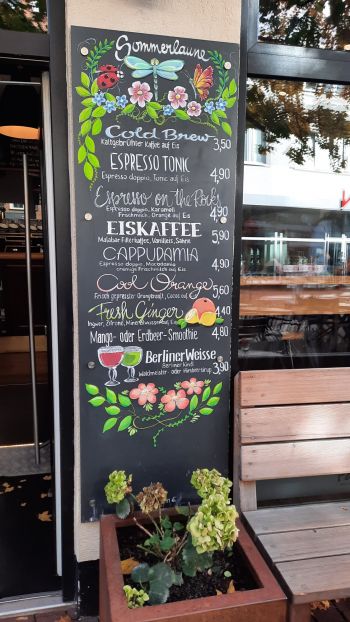 Sommerlaune
Cold Brew
Kaltgebrühter Kaffee auf Eis 3,50
ESPRESSO TONIC
Espresso doppio, Tonic auf Eis 4,90
Espresso on the Rocks
Espresso doppio, Karamell 4,90
Frischmilch, Orange auf Eis
EISKAFFEE 5,90
Malabar Filterkaffee, Vanilleeis, Sahne
CAPPUDAMIA
Espresso doppio, Macadamia 4,90
cremige Frischmilch auf Eis
Cool Orange 5,60
Frisch gepresster Orangensaft, Cocos auf
Fresh Ginger 4,40
Ingwer, Zitrone, Mineralwasser
Mango- oder Erdbeer-Smoothie 4,80
Berliner Weisse 3,90
Berliner Kindl
Waldmeister- oder Himbeersirup